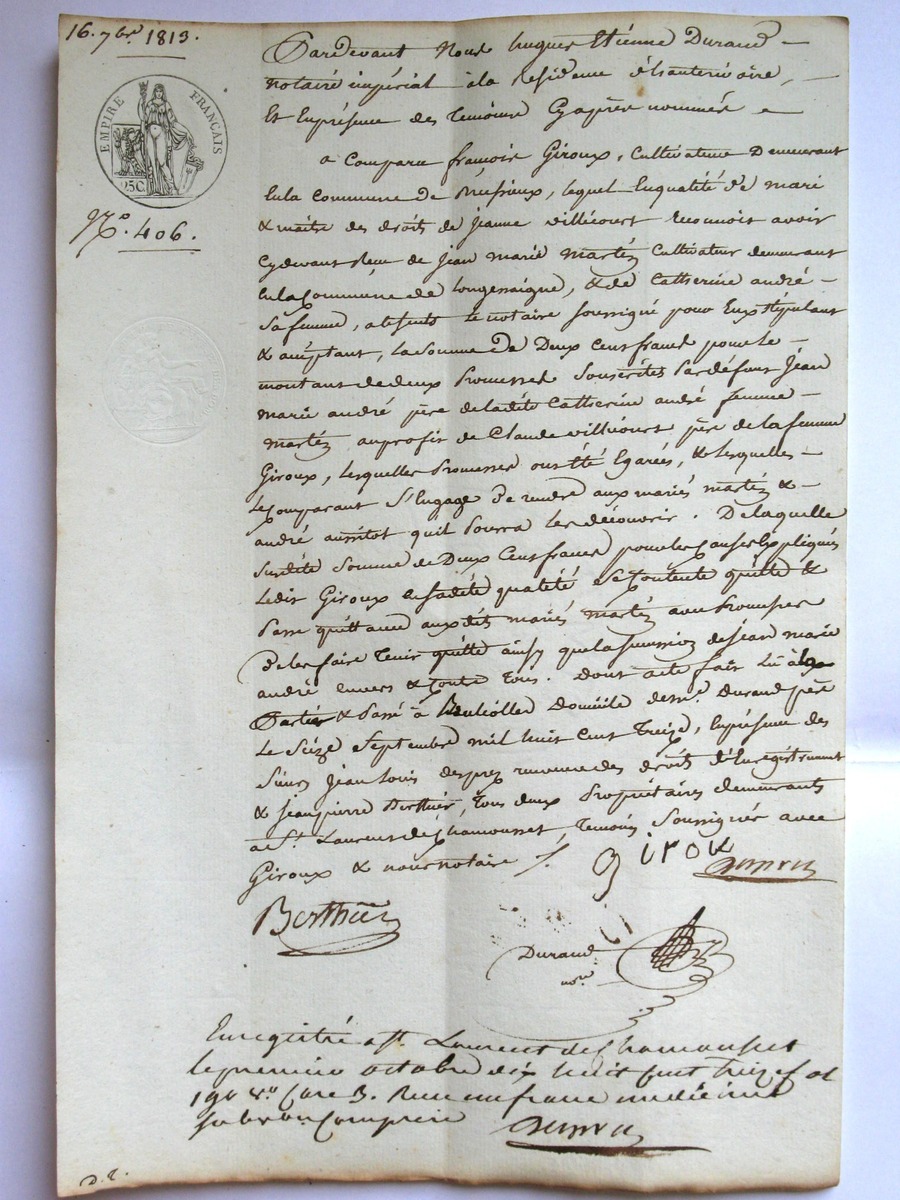 16. 7bre 1813.
EMPIRE FRANÇAIS
25C.
No. 406.
Pardevant Nous hugues Etienne Durand
notaire impérial à la Residence
Et Enprésence des temoins Cyaprès nommés
a Comparu françois Giroux, Cultivateur Demeurant
En la Commune de Brussieux, lequel Enqualité de mari
& maitre des droits de jeanne villécourt reconnoit avoir
Cydevant Reçu de jean marie martin Cultivateur demeurant
En la Commune de Longessaigne, & de Catherine andré
Sa femme, absents le notaire soussigné pour Eux Stipulant
& acceptant, la Somme De Deux Cent francs pour le
montant de deux Promesses Souscrites Par défunt Jean
marie andré père de ladite Catherine andré femme
martin auprofit de Claude villécourt père de la femme
Giroux, lesquelles Promesses ont été Egarées, & lesquelles
le Comparant S'Engage De rendre aux mariés martin &
andré aussitot quil Pourra les découvrir. De laquelle
Susdite Somme de Deux Cent francs pour les Causes Expliqués
Ledit Giroux en sadite qualité se Contente quitte &
Passe quittance auxdits mariés martin avec Promesse
De les faire tenir quitte ainsy que la succession de jean marie
andré envers & Contre tous. Dont acte fait Lû aux
Parties & Passé à Domicile de Mr. Durand père
Le Seize Septembre mil huit Cent Treize, Enprésence des
Sieurs jean Louis despres receveur des droits d'Enregistrement
& jeanpierre Berthier, tous deux Propriétaires demeurants
à St. Laurent de Chamousset, temoins Soussignés avec
Giroux & nous notaire ./.
girou
Berthier
Durand
nore.
Enregistré a St. Laurent de Chamousset
le premier octobre dix huit Cent treize fol
190 Vo Case 3. Reçu un franc un décime
subvon Comprise
D. 2.